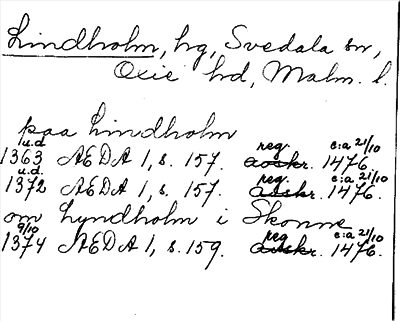 Lindholm, hg, Svedala sn,
Oxie hd, Malm. l.
paa Lindholm
u.d. reg. e:a 21/10
1363 AEDA 1, s. 157. avskr. 1476.
u.d. reg. e:a 21/10
1372 AEDA 1, s. 157. avskr. 1476.
om Lyndholm i Skonne
9/10 reg. e:a 21/10
1374 AEDA 1, s. 159. avskr. 1476.